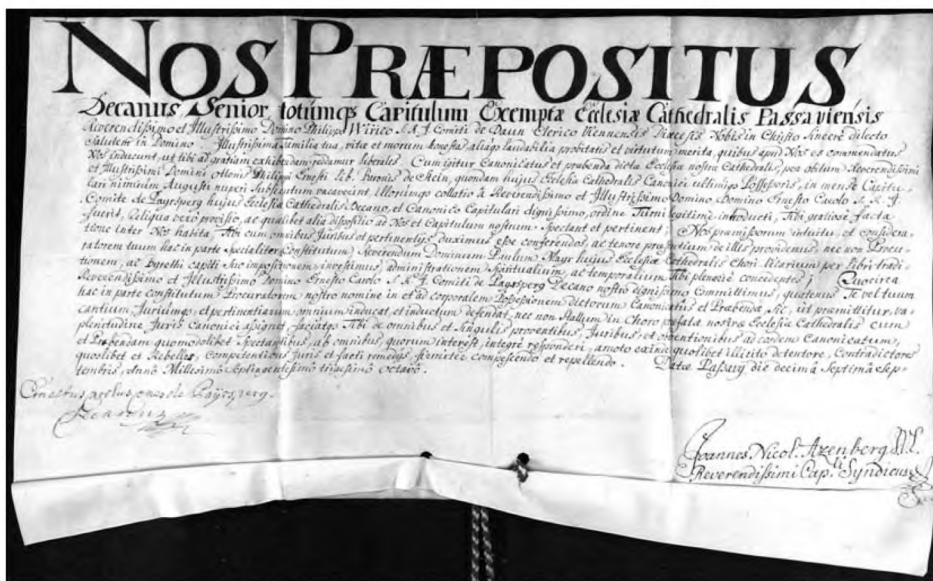 NOS PRÆPOSITUS
Decanus, Senior totúmq3 Capitulum Exemptæ Ecclesiæ Cathedralis Passaviensis
Reverendissimo et Illustrissimo Domino Philippo Wirico S. R. I. Comiti de Daun Clerico Viennensis Diœcesis Nobis in Christo sincerè dilecto
salutem in Domino. Illustrissima familia tua, vitæ et morum honestas aliaq3 laudabilia probitatis et virtutum merita, quibus apud Nos es commendatus
Nos inducunt, ut tibi ad gratiam exhibendam reddamur liberales. Cum igitur Canonicatus et præbenda dictæ Ecclesiæ nostræ Cathedralis, per obitum Reverendissimi
et Illustrissimi Domini Ottonis Philippi Ernesti Lib. Baronis de Stein, quondam hujus Ecclesiæ Cathedralis Canonici ultimiq3 Possessoris, in mense Capitu-
lari nimirum Augusti nuperi Subsentum vacaverint, illorumq3 collatio à Reverendissimo et Illustrissimo Domino, Domino Ernesto Carolo S. R. I.
Comite de Payrsperg hujus Ecclesiæ Cathedralis Decano, et Canonico Capitulari dignissimo, ordine Turni legitimè introducti, Tibi gratiosè facta
fuerit, reliqua verò provisio, ac quælibet alia dispositio ad Nos et Capitulum nostrum spectant et pertinent; Nos præmissorum intuitu, et considera-
tione inter Nos habita, Tibi cum omnibus Juribus et pertinentijs duximus esse conferendos, ac tenore præsentium de illis providemus, nec non Procu-
ratorem tuum hac in parte specialiter constitutum Reverendum Dominum Paulum Mayr hujus Ecclesiæ Cathedralis Chori Vicarium per libri tradi-
tionem, ac byrethi capiti suo impositionem, investimus, administrationem Spiritualium, ac temporalium Tibi plenariè concedentes; Quocirca
Reverendissimo et Illustrissimo Domino Ernesto Carolo S. R. I. Comiti de Payrsperg Decano nostro dignissimo Committimus, quatenus Te vel tuum
hac in parte constitutum Procuratorem nostro nomine in et ad corporalem Possessionem dictorum Canonicatus et Præbendæ, sic, ut præmittitur, va-
cantium, Juriumq3, et pertinentiarum omnium inducat et inductum defendat, nec non Stallum in Choro præfatæ nostræ Ecclesiæ Cathedralis cum
plenitudine Juris Canonici assignet, faciatq3 Tibi de omnibus et singulis proventibus, Juribus, et obventionibus ad eosdem Canonicatum,
et Præbendam quomodolibet Spectantibus, ab omnibus, quorum interest, integrè responderi, amoto exinde quolibet illicito detentore, Contradictores
quoslibet et Rebelles, Competentibus Juris et facti remedijs compescendo et repellendo. Datæ Passavij die decima Septima Sep-
tembris, Anno Millesimo Septingentesimo trigesimo octavo.
Ernestus
Decanus
Joannes Nicol. Azenberg
Reverendissimi Cap. Syndicus